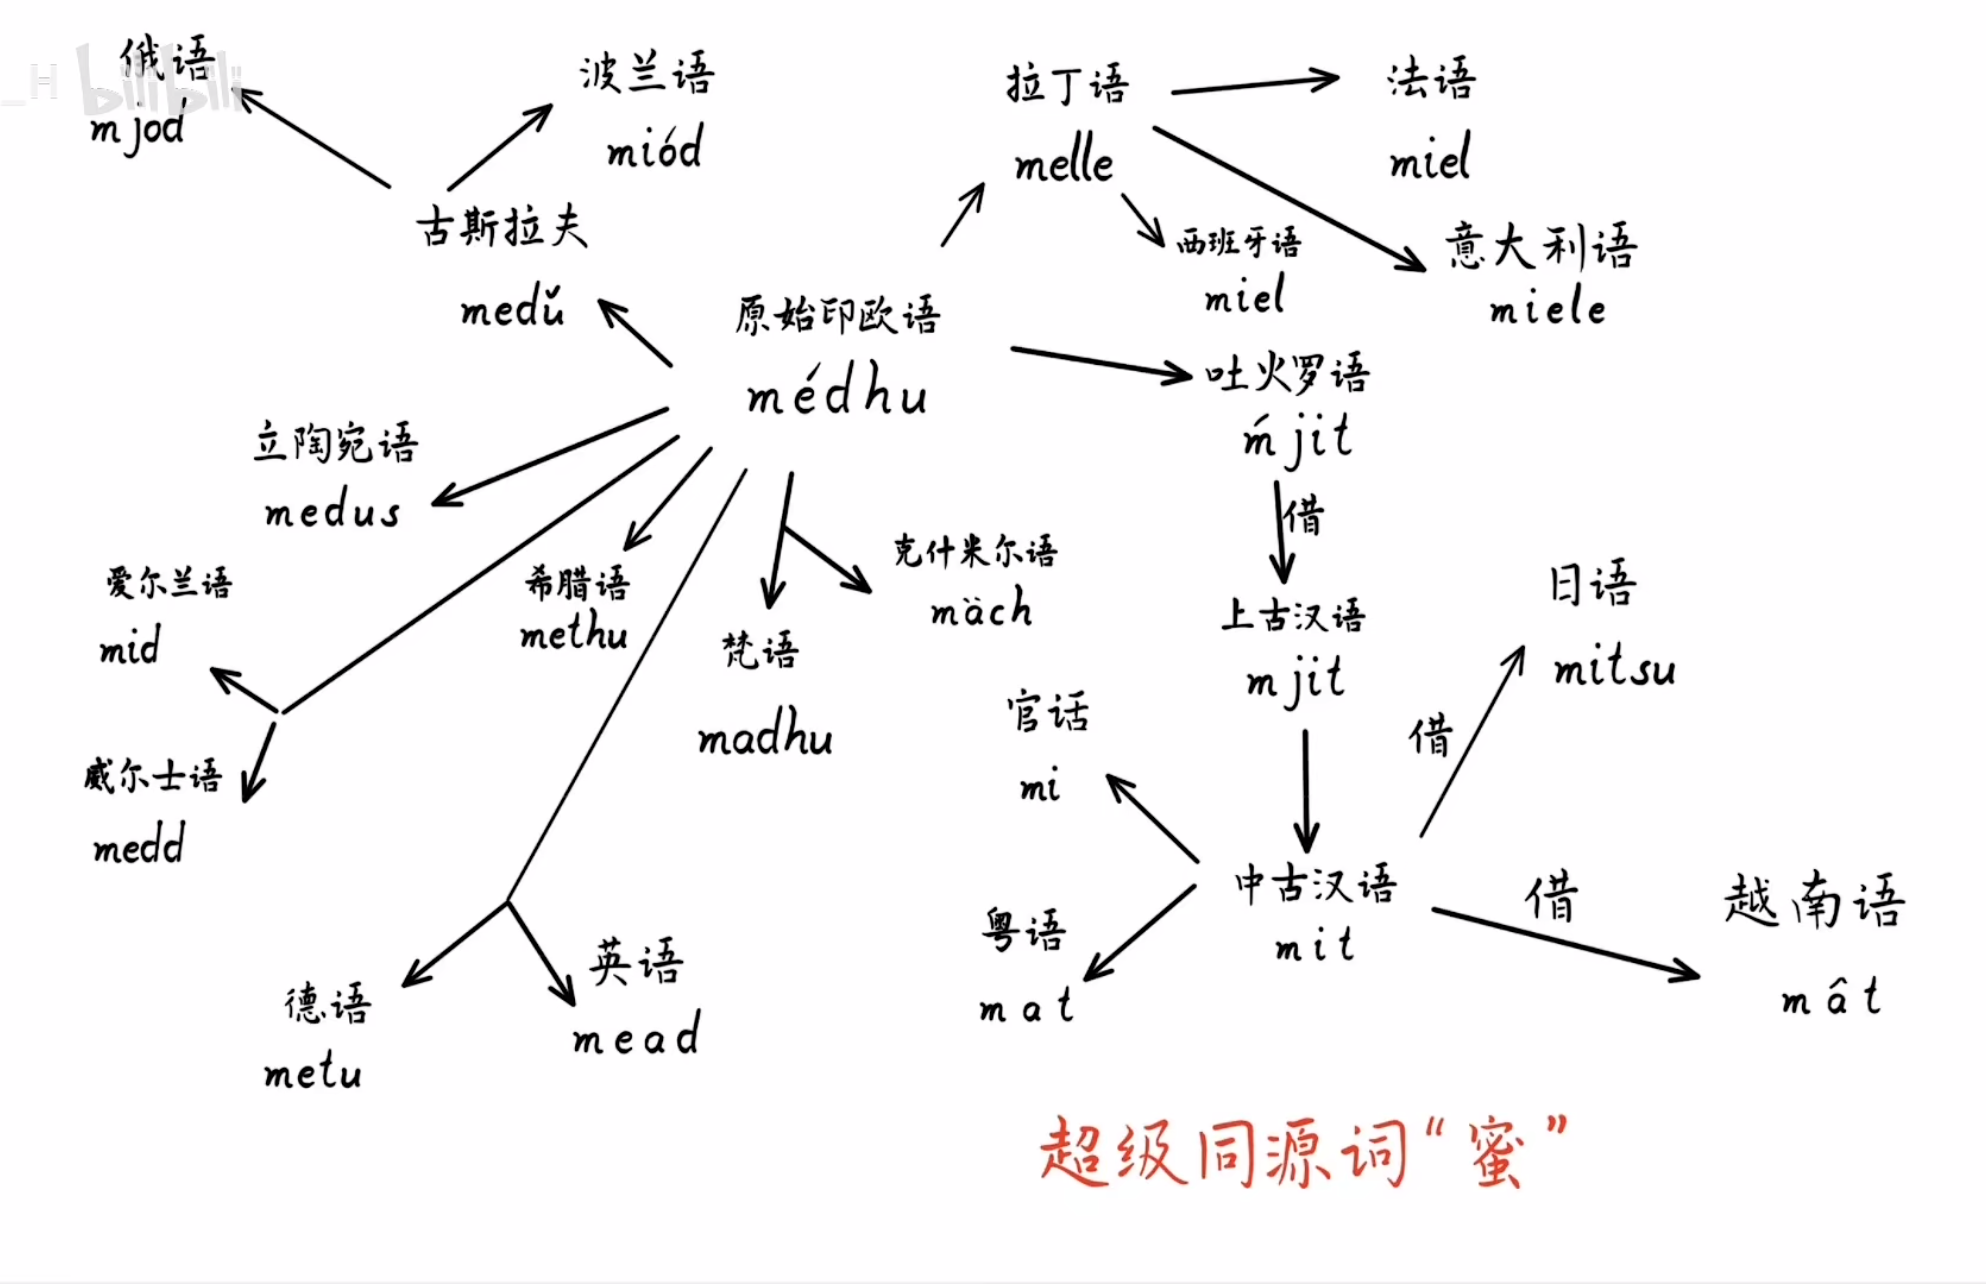 _H bilibili
俄语
mjod
波兰语
miód
古斯拉夫
medǔ
拉丁语
melle
法语
miel
西班牙语
miel
意大利语
miele
原始印欧语
médhu
吐火罗语
ḿjit
借
上古汉语
mjit
立陶宛语
medus
爱尔兰语
mid
威尔士语
medd
希腊语
methu
梵语
madhu
克什米尔语
mäch
德语
metu
英语
mead
官话
mi
粤语
mat
中古汉语
mit
借
日语
mitsu
借
越南语
mât
超级同源词“蜜”